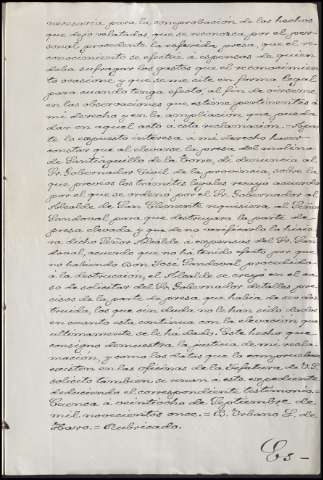 necesaria para la comprobacion de los hechos
que dejo relatados, que se reconozca por el per-
sonal procedente la referida presa, que el re-
conocimiento se efectue á expensas de quien
deba sufragar los gastos que el reconocimien-
to ocasione y que se me cite en forma legal
para cuando tenga efecto, al fin de oirseme
en las observaciones que estime pertinentes á
mi derecho y en la ampliación que pueda
dar en aquel acto á esta reclamación.
te lo expuesto interesa á mi derecho hacer
constar que al elevarse la presa del molino
de Santiaguillo de la torre, dí denuncia al
Sr. Gobernador Civil de la provincia, sobre la
que previos los tramites legales recayó acuerdo
por el que se ordena por el Sr. Gobernador al
Alcalde de San Clemente requiriera al Señor
Sandoval para que destruyera la parte de
presa elevada y que de no verificarlo la hicie-
ra dicho Señor Alcalde á expensas del Sr. San-
doval, acuerdo que no ha tenido efecto por que
no habiendo Don José Sandoval procedido
á la destrucción, el Alcalde se creyo en el ca-
so de solicitar del Sr. Gobernador detalles pre-
cisos de la parte de presa que habia de ser des-
truida, los que sin duda no le han sido dados
en cuanto esta continua con la elevación que
ultimamente se le ha dado. Este hecho que
consigno demuestra la justicia de mi recla-
mación, y como los datos que la comprueban
existen en las oficinas de la Jefatura de O.P.
solicito tambien se unan á este expediente
deduciendo el correspondiente testimonio.=
Cuenca á veintiocho de Septiembre de
mil novecientos once.= Urbano L. de
Haro.= Rubricado.
Es-